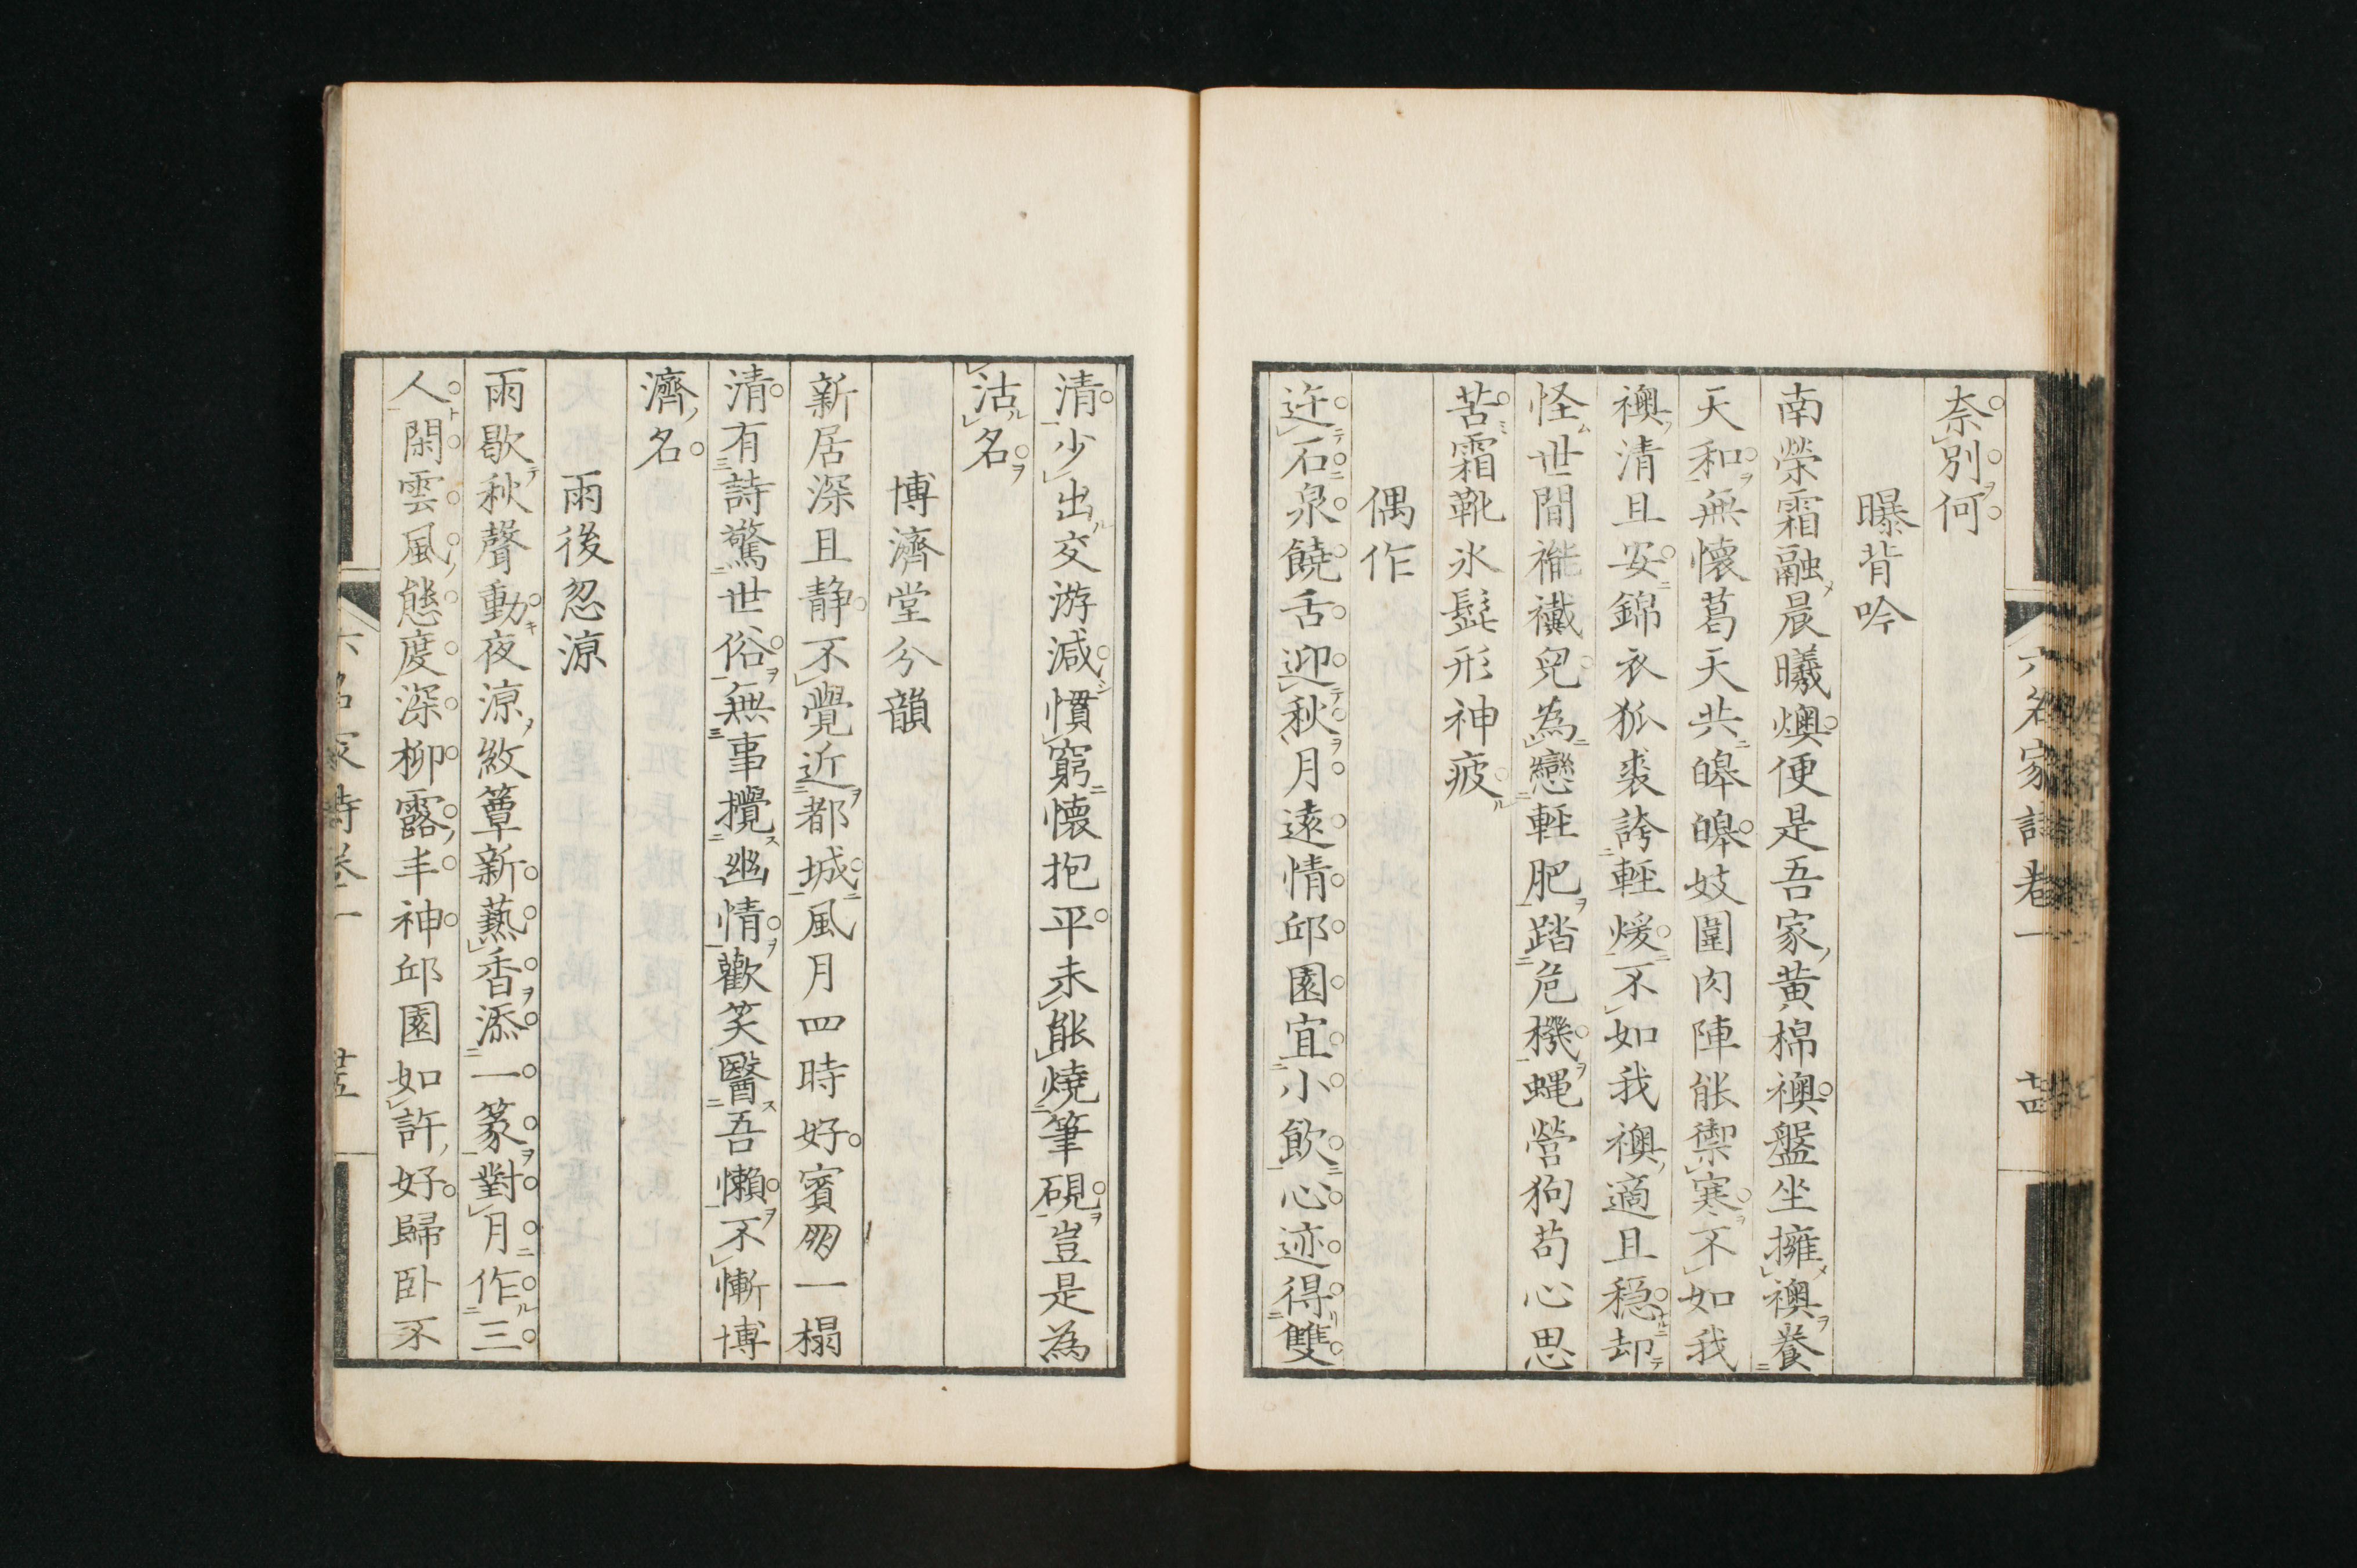 六名家詩卷一 十四
奈別何
曝背吟
南榮霜融晨曦燠便是吾家黄棉襖盤坐擁襖養
天和無懷葛天共皥皥妓圍肉陣能禦寒不如我
襖清且安錦衣狐裘誇輕煖不如我襖適且穩却
怪世間褦襶兒為戀輕肥踏危機蝿營狗苟心思
苦霜靴氷髭形神疲
偶作
迸石泉饒舌迎秋月遠情邱園宜小飲心迹得雙
清少出交游減慣窮懷抱平未能燒筆硯豈是為
沽名
博濟堂分韻
新居深且静不覺近都城風月四時好賓朋一榻
清有詩驚世俗無事攪幽情歡笑醫吾懶不慚博
濟名
雨後忽涼
雨歇秋聲動夜涼紋簟新爇香添一篆對月作三
人閑雲風態度深柳露丰神邱園如許好歸卧不
六名家詩卷一 廿五